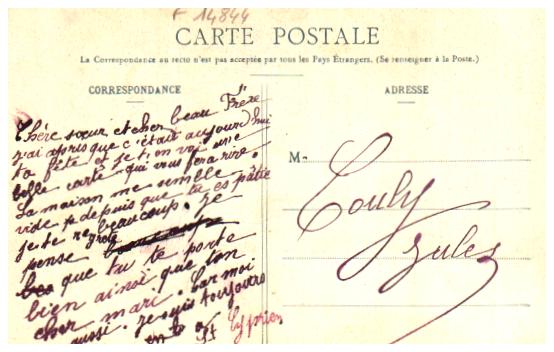 F 14844
CARTE POSTALE
La Correspondance au recto n'est pas acceptée par tous les Pays Étrangers. (Se renseigner à la Poste.)
CORRESPONDANCE
Chère sœur et cher beau Frère
j'ai apris que c'était aujourd'hui
ta fête et je t'en voi une
belle carte qui vous fera rire.
La maison me semble
vide depuis que tu es partie
je te regrete beaucoup. Je
pense beaucoup
que tu te porte
bien ainsi que ton
cher mari. Car moi
aussi. je suis toujours
en
St Cyprien
ADRESSE
M
Couly
Jules